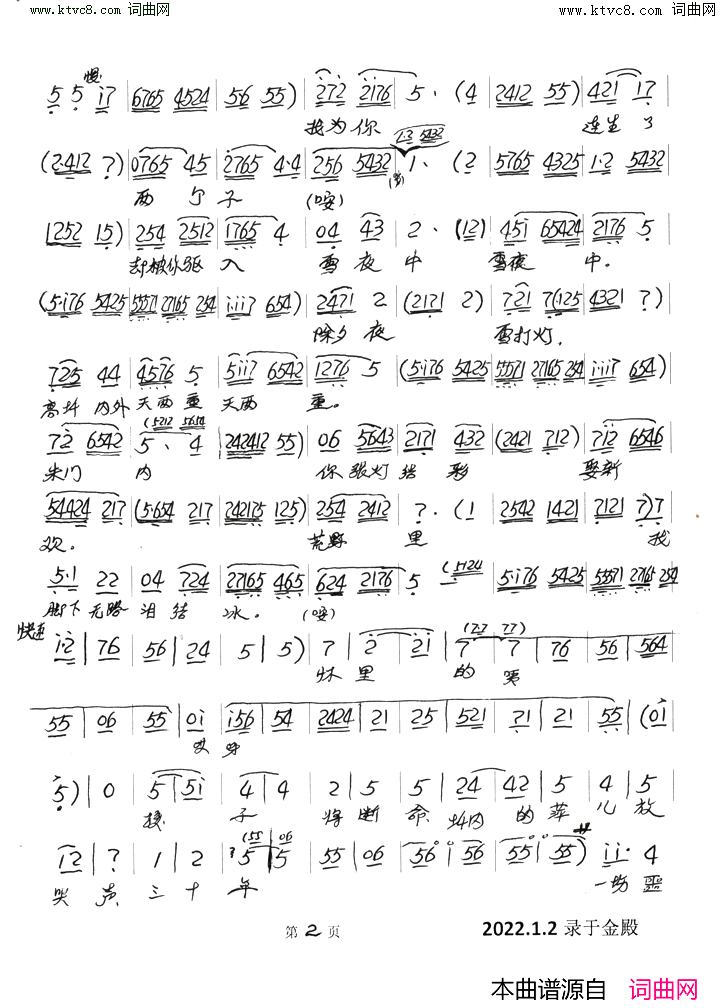 www.ktvc8.com 词曲网 www.ktvc8.com 词曲网
慢
5 5 i7 | 6765 4524 | 56 55) | 272 2176 | 5· (4 | 2412 55) | 421 17
我为你 连生了
(2412 7) | 0765 45 | 2765 4·4 | 256 5432 | 1· (2 | 5765 4325 | 1·2 5432
两个子 (哎)
1252 15) | 254 2512 | 1765 4 | 04 43 | 2· (12) | 45i 65424 | 2176 5
却被你驱入 雪夜中 雪夜中.
(5·i76 5425 | 55571 27165 254 | i·ii7 654) | 2471 2 | (2171 2) | 721 7(125 | 4321 7)
除夕夜 雪打灯.
725 44 | 4576 5 | 5ii7 6542 | 1276 5 | (5·i76 5425 | 55571 27165 254 | i·ii7 654)
内外天两重天两重。
(5212 5654
72 6542 | 5· 4 | 242412 55) | 06 5643 | 2171 432 | (2421 712) | 712 6546
朱门内 你张灯结彩娶新
54424 217 | (5·654 217 | 242175 125) | 254 2412 | 7· (1 | 2542 1421 | 7121 7) 7
欢. 荒野里 我
5·1 22 | 04 724 | 27165 465 | 624 2176 | 5 (5124 | 5·i76 5425 | 55571 27165 254
脚下无路泪结冰。 (哎)
快速
i·2 | 76 | 56 | 24 | 5 | 5) | 7 | 2 | 21 | 7 | 7 | 76 | 56 | 564
怀里的
55 | 06 | 55 | 0i | i56 | 54 | 2424 | 21 | 25 | 521 | 71 | 21 | 55 | (0i
5) | 0 | 5 | 5i | 4 | 4 | 2 | 5 | 5 | 24 | 42 | 5 | 4 | 5
子 将断命 内的 儿放
i2 | 7 | 1 | 2 | 5 | 5 | 55 | 06 | 56 i 56 | 55 i 55) | ii· 4
哭声三十年 一场噩
第 2 页 2022.1.2 录于金殿
本曲谱源自 词曲网